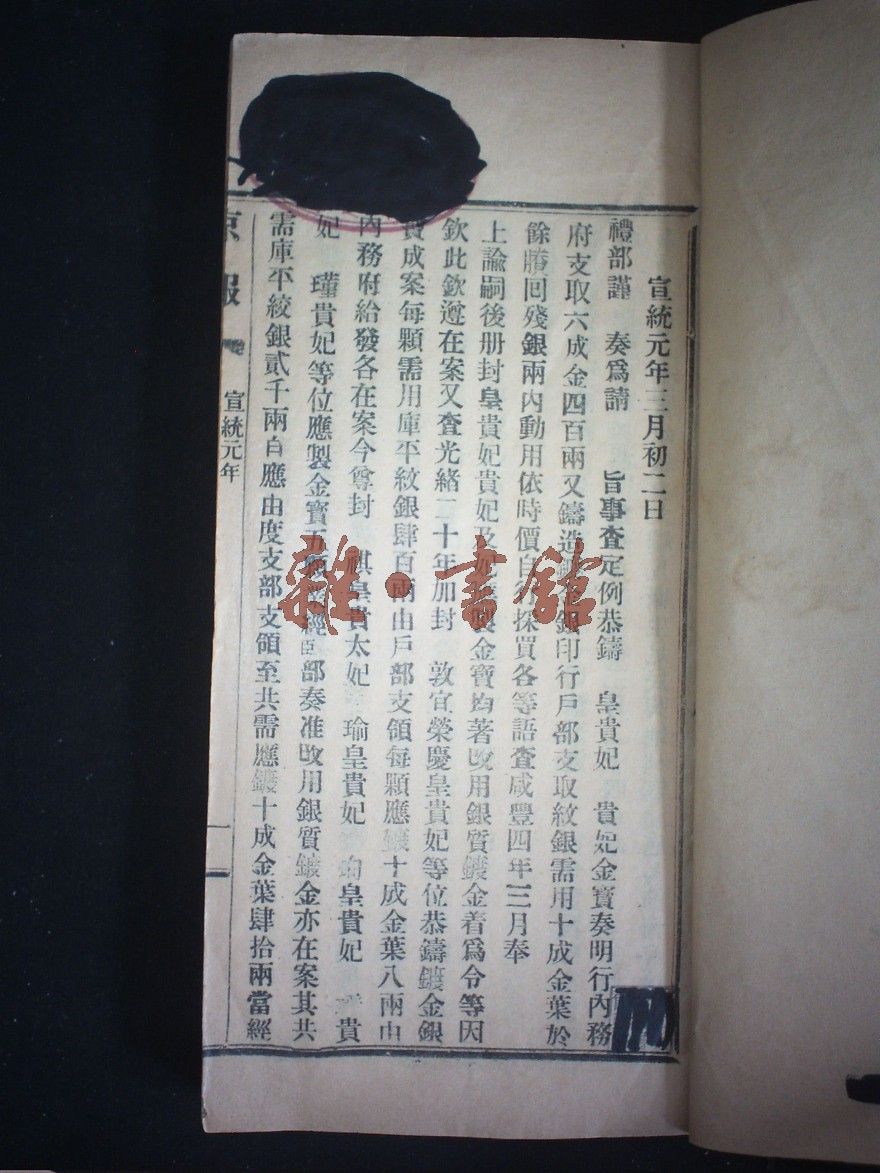 宣統元年三月初二日
禮部謹 奏爲請 旨事查定例恭鑄 皇貴妃 貴妃金寶奏明行內務
府支取六成金四百兩又鑄造銀印行戶部支取紋銀需用十成金葉於
餘賸回殘銀兩內動用依時價自行採買各等語查咸豐四年三月奉
上諭嗣後册封皇貴妃貴妃及妃製金寶均著改用銀質鍍金着爲令等因
欽此欽遵在案又查光緒二十年加封 敦宜榮慶皇貴妃等位恭鑄鍍金銀
寶成案每顆需用庫平紋銀肆百兩由戶部支領每顆應鍍十成金葉八兩由
內務府給發各在案今尊封 祺皇貴太妃 瑜皇貴妃 珣皇貴妃 貴
妃 瑾貴妃等位應製金寶五顆業經臣部奏准改用銀質鍍金亦在案其共
需庫平紋銀貳千兩自應由度支部支領至共需應鍍十成金葉肆拾兩當經
京報 宣統元年 一
雜·書館